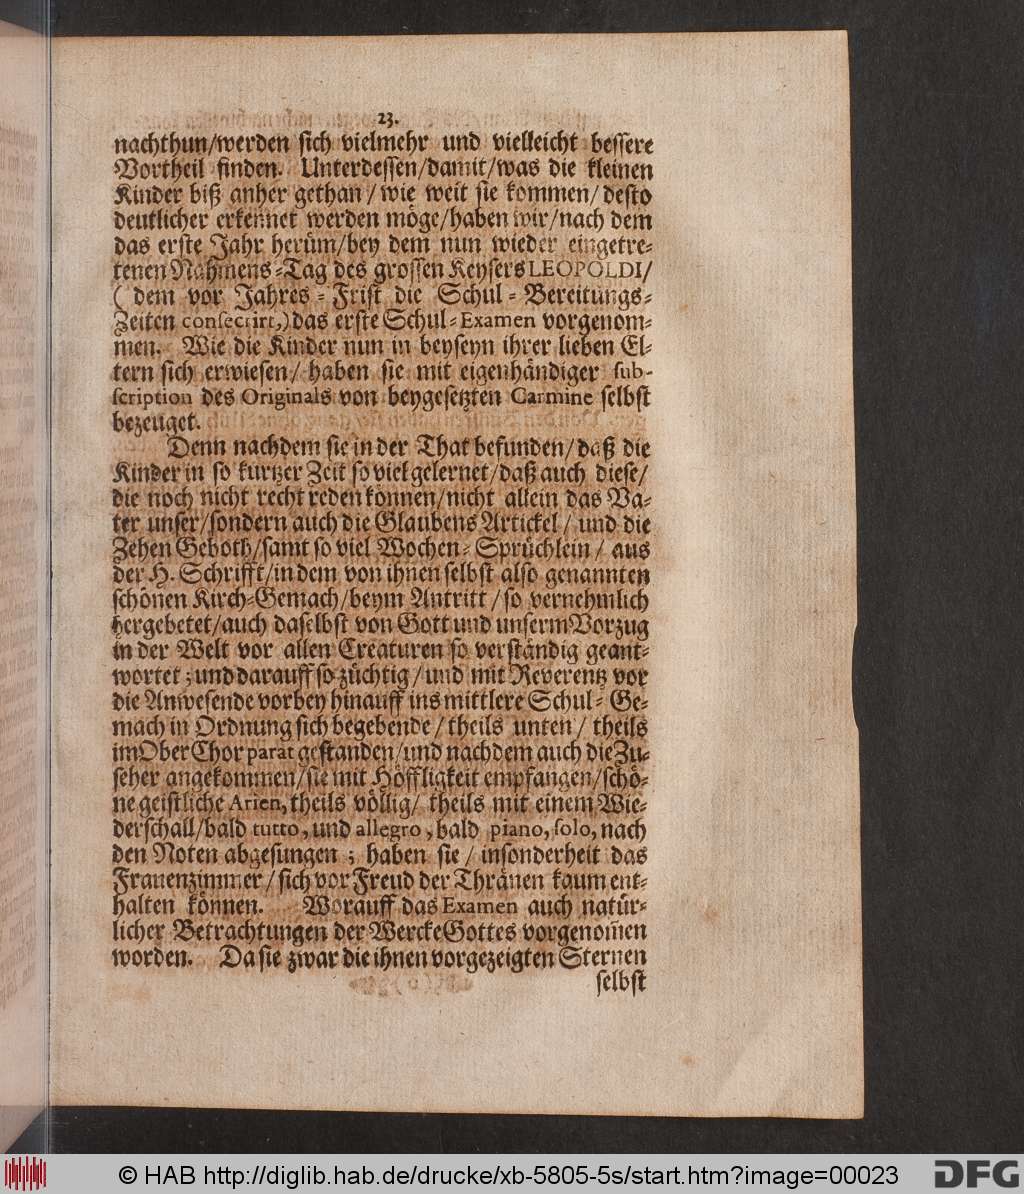 23.
nachthun/werden sich vielmehr und vielleicht bessere
Vortheil finden. Unterdessen/damit/was die kleinen
Kinder biß anher gethan/wie weit sie kommen/desto
deutlicher erkennet werden möge/haben wir/nach dem
das erste Jahr herüm/bey dem nun wieder eingetre-
tenen Nahmens-Tag des grossen Keysers LEOPOLDI/
( dem vor Jahres-Frist die Schul-Bereitungs-
Zeiten consecrirt,) das erste Schul-Examen vorgenom-
men. Wie die Kinder nun in beyseyn ihrer lieben El-
tern sich erwiesen/ haben sie mit eigenhändiger sub-
scription des Originals von beygesetzten Carmine selbst
bezeuget.
Denn nachdem sie in der That befunden/daß die
Kinder in so kurtzer Zeit so viel gelernet/daß auch diese/
die noch nicht recht reden können/nicht allein das Va-
ter unser/sondern auch die Glaubens Artickel/ und die
Zehen Geboth/samt so viel Wochen-Sprüchlein/ aus
der H. Schrifft/in dem von ihnen selbst also genannten
schönen Kirch-Gemach/beym Antritt/so vernehmlich
hergebetet/auch daselbst von Gott und unserm Vorzug
in der Welt vor allen Creaturen so verständig geant-
wortet; und darauff so züchtig/und mit Reverentz vor
die Anwesende vorbey hinauff ins mittlere Schul-Ge-
mach in Ordnung sich begebende/theils unten/ theils
im Ober Chor parat gestanden/und nachdem auch die Zu-
seher angekommen/sie mit Höffligkeit empfangen/schö-
ne geistliche Arien, theils völlig/ theils mit einem Wie-
derschall/bald tutto, und allegro, bald piano, solo, nach
den Noten abgesungen; haben sie/ insonderheit das
Frauenzimmer/sich vor Freud der Thränen kaum ent-
halten können. Worauff das Examen auch natür-
licher Betrachtungen der Wercke Gottes vorgenom̃en
worden. Da sie zwar die ihnen vorgezeigten Sternen
selbst
© HAB http://diglib.hab.de/drucke/xb-5805-5s/start.htm?image=00023
DFG